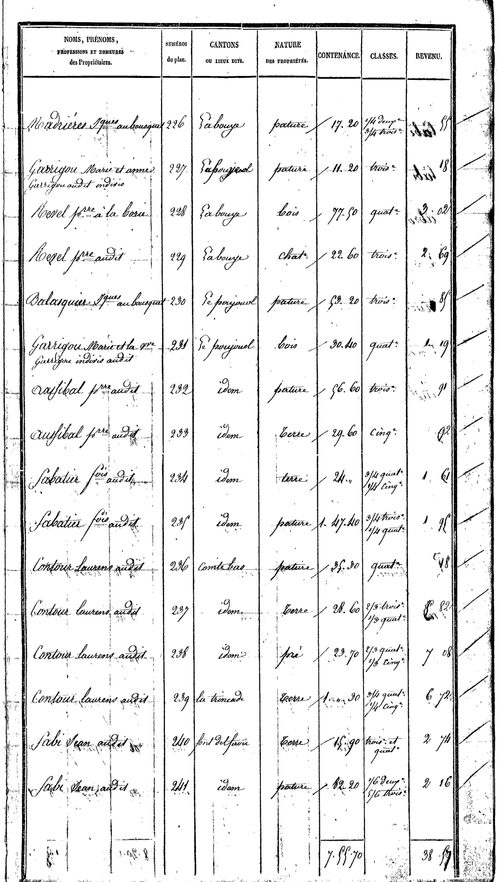 NOMS, PRÉNOMS, PROFESSIONS ET DEMEURES des Propriétaires. NUMÉROS du plan. CANTONS OU LIEUX DITS. NATURE DES PROPRIÉTÉS. CONTENANCE. CLASSES. REVENU.
Madrières Jques au bousquet 226 Labouye pature 17. 20 1/4 deuxe 3/4 troise 55
Garrigou Marie et anne 227 pature 11. 20 troise 18
Garrigou audit indivis
Revel prre à la borie 228 Labouye bois 77. 50 quate 3 02
Revel prre audit 229 Labouye chate 22. 60 troise 2. 69
Balasquier Jques au bousquet 230 Le poujouol pature 53. 20 troise 85
Garrigou Marie et la 231 Le poujouol bois 30. 40 quate 1 19
Garrigou indivis audit
Aussibal prre audit 232 idem pature 56. 60 troise 91
Aussibal prre audit 233 idem terre 29. 60 cinqe 92
Sabatier fois audit 234 idem terre 24. " 3/4 quate 1/4 cinqe 1 61
Sabatier fois audit 235 idem pature 1. 47. 40 3/4 troise 1/4 quate 1 95
Contour laurens audit 236 combe bas pature 35. 30 quate 48
Contour laurens audit 237 idem terre 28. 60 2/3 troise 1/3 quate 82
Contour laurens audit 238 idem pré 23. 70 quate cinqe 7 08
Contour laurens audit 239 la trincade terre 1. " . 30 3/4 quate 1/4 cinqe 6 72
Sabi Jean audit 240 terre 15. 90 troise et quate 2 74
Sabi Jean audit 241 idem pature 12. 20 1/6 deuxe 5/6 troise 2 16
7. 55 70 38 57